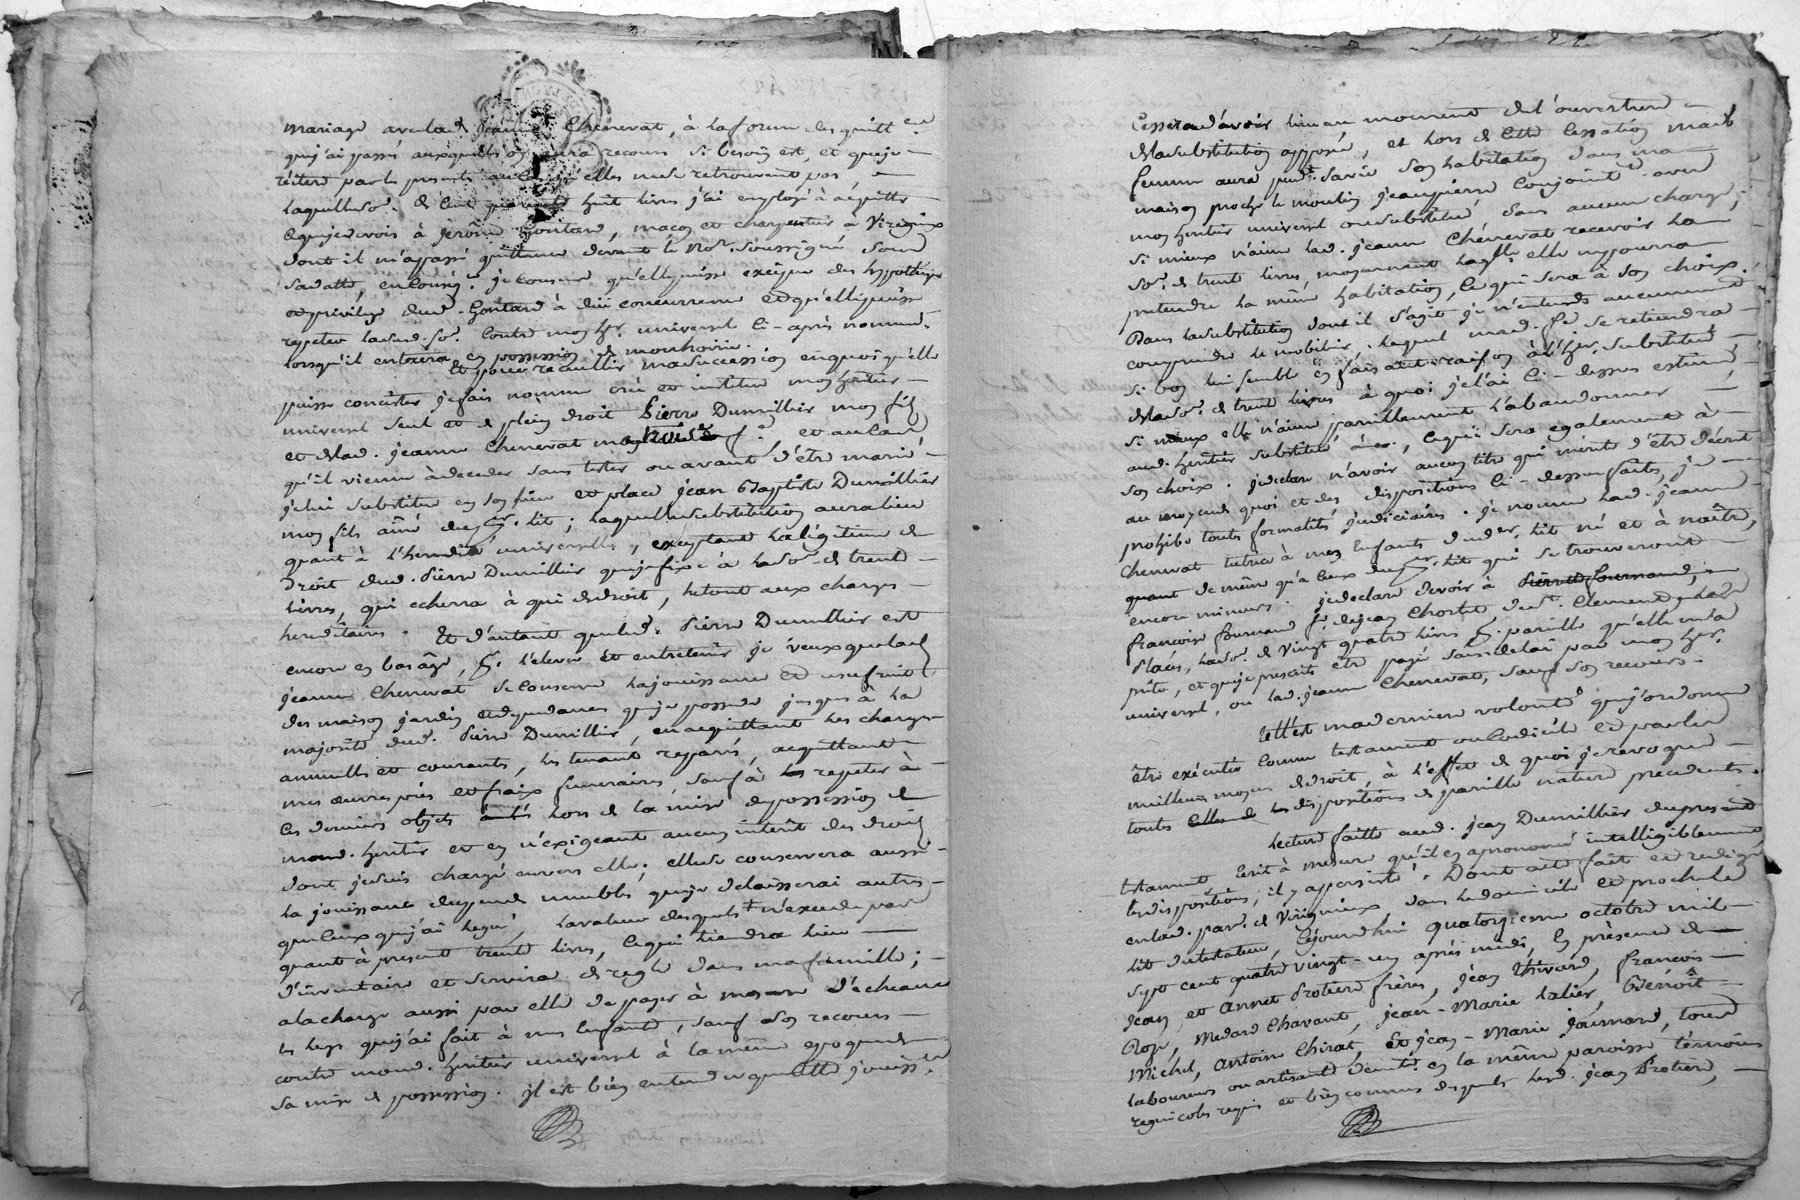 mariage avec lad. jeanne Chenevat, à la forme des quitt.ces
que j'ai passé auxquelles on aura recours si besoin est, et que je
réitere par les presentes au cas qu'elles ne se retrouvent pas,
laquelle so.e de cent quarante huit livres j'ai employé à acquitter
ce que je devois à jérôme Gontard, maçon et charpentier à Virigneux
dont il m'a passé quittance devant le No.re soussigné sous
sa datte, en conséq.ce je consens qu'elle puisse exciper des hypotheques
et privilege dud. Gontard à düe concurrence et qu'elle puisse
repeter lad. so.e contre mon h.er universel ci-après nommé,
lorsqu'il entrera en possession de mon hoirie.
Et pour recueillir ma succession en quoi qu'elle
puisse concister je fais nomme crée et institue mon héritier
universel seul et de plein droit Pierre Dumillier mon fils
et de lad. jeanne Chenevat ma f.e et au cas
qu'il vienne à deceder sans tester ou avant d'être marié
je lui substitue en son lieu et place jean Baptiste Dumillier
mon fils aîné du p.er lit; laquelle substitution aura lieu
quant à l'heredité universelle, exceptant la légitime de
droit dud. Pierre Dumillier que je fixe à la so.e de trente
livres, qui echerra à qui de droit, le tout aux charges
hereditaires. Et d'autant que led. Pierre Dumillier est
encore en bas âge, p.r l'elever et entretenir je veux que lad.
jeanne Chenevat se conserve la jouissance et usufruit
des maison jardin et dependances que je possede jusques à la
majorité dud. Pierre Dumillier, en acquittant les charges
annuelles et courantes, les tenant reparés, acquittant
mes œuvres pies et fraix funeraires sauf à les repeter à
ces derniers objets lors de la mise de possession de
mond. heritier et en n'exigeant aucun interêt des droits
dont je suis chargé envers elle; elle se conservera aussi
la jouissance du peu de meubles que je delaisserai autres
que ceux que j'ai legué, la valeur desquels n'excede pas
quant à présent trente livres, ce qui tiendra lieu
d'inventaire et servira de regle dans ma famille;
a la charge aussi par elle de payer à mesure d'echeance
les legs que j'ai fait à mes enfants, sauf son recours
contre mond. heritier universel à la même epoque de
sa mise de possession. il est bien entendu que cette jouiss.ce
Cessera d'avoir lieu au moment de l'ouverture
de la substitution apposée, et lors de cette cessation mad.
femme aura pend.t sa vie son habitation dans ma
maison proche le moulin jean pierre conjoint.t avec
mon heritier universel ou substitué sans aucune charge;
si mieux n'aime lad. jeanne Chénevat recevoir la
so.e de trente livres, moyennant laq.lle elle ne pourra
pretendre la même habitation, ce qui sera à son choix.
Dans la substitution dont il s'agit je n'entends aucunement
comprendre le mobilier, lequel mad. fe. se retiendra
si bon lui semble en faisant raison à l'h.er substitué
de la so.e de trente livres à quoi je l'ai ci-dessus estimé,
si mieux elle n'aime pareillement l'abandonner
aud. heritier substitué, ce qui sera également à
son choix. je declare n'avoir aucun titre qui mérite d'être décrit
au moyend quoi et des dispositions ci-dessus faites, je
prohibe toutes formalités judiciaires. je nomme lad. jeanne
Chenevat tutrice à mes enfants dud. er. lit né et à naître,
quant de même qu'à ceux du p.er lit qui se trouveront
encore mineurs. je declare devoir à
françoise fournand f.e de jean Chorlet de Clement
Places, la so.e de vingt quatre livres p.r pareille qu'elle m'a
prêté, et que je prescris être payé sans delai par mon h.er
universel, ou lad. jeanne Chenevat, sauf son recours.
telle est ma derniere volonté que j'ordonne
être exécutée comme testament ou codicile et par les
meilleurs moyens de droit, à l'effet de quoi je revoque
toutes les dispositions de pareille nature precedentes.
Lecture faitte aud. jean Dumillier du present
testament ecrit à mesure qu'il en a prononcé intelligiblement
les dispositions, il y a persisté. Dont acte fait et redigé
en lad. par.se de Virigneux dans le domicile et proche le
lit du testateur, cejourd'hui quatorzieme octobre mil
sept cent quatre vingt-un après midi, en présence de
jean et annet Protiere freres, jean Thivard, françois
Roze, Medard Chavant, jean-Marie Lalier, Benoît
Michel, antoine Chirat, et jean-Marie jaumard, tous
laboureurs ou artisants demeu.t en la même paroisse témoins
regnicoles requis et bien connus desquels led. jean Protiere,